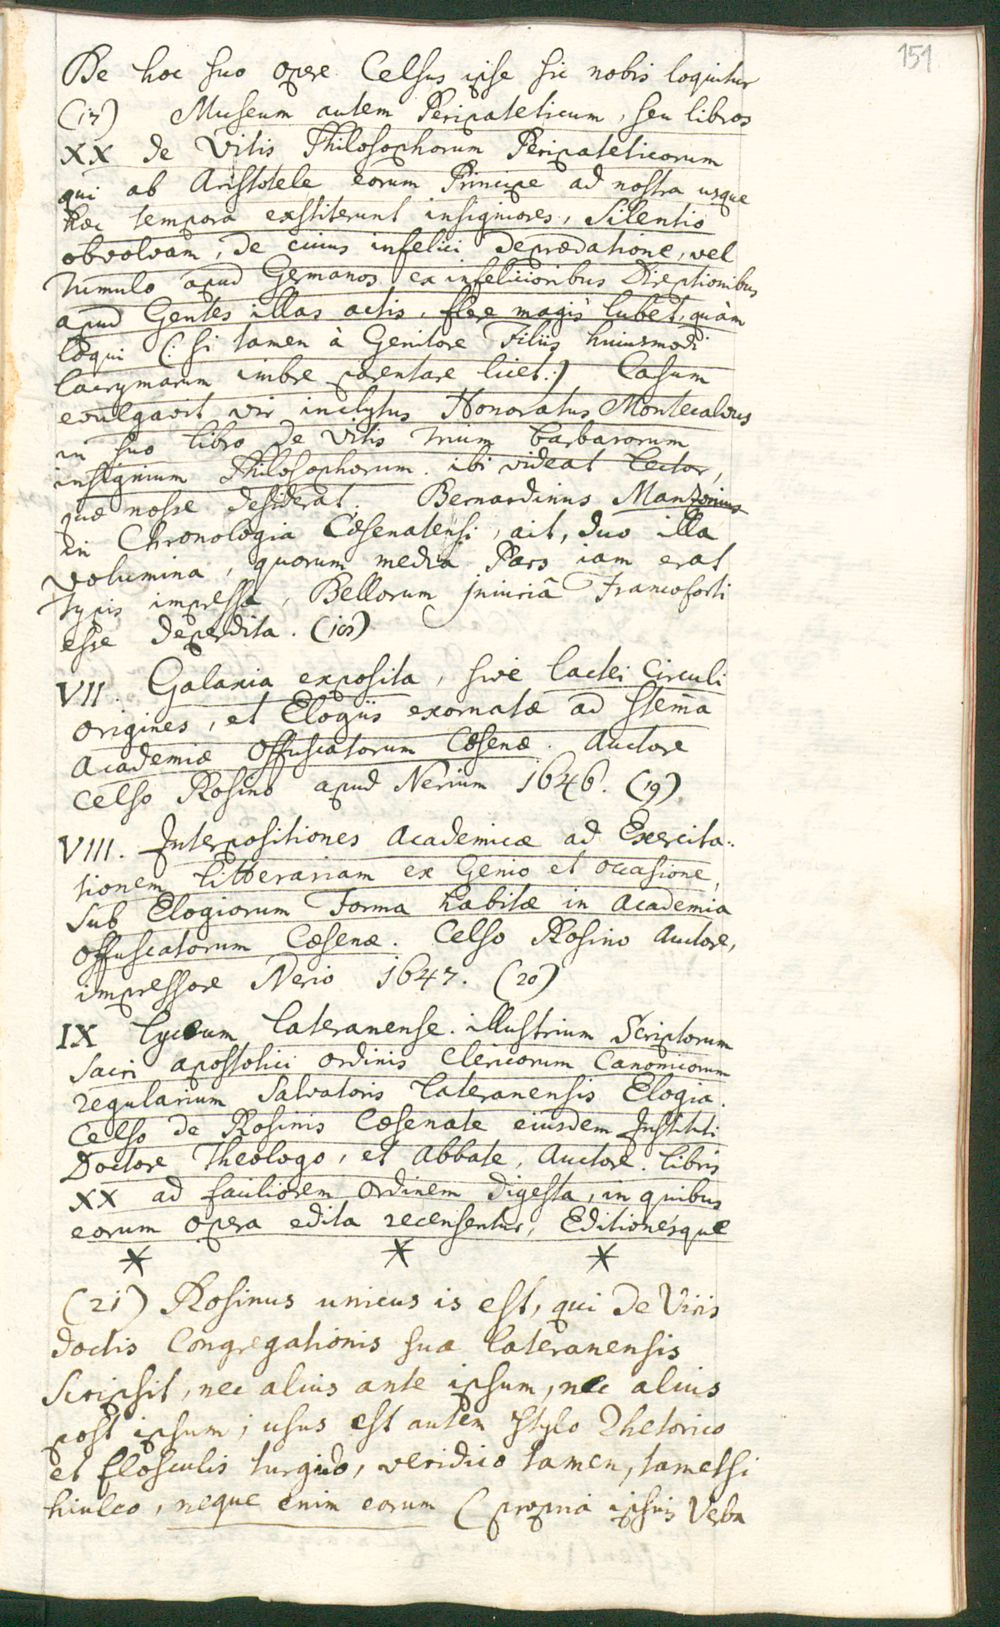 151
De hoc suo opere Celsus ipse sic nobis loquitur
(17) Museum autem Peripateticum, seu libros
XX de Vitis Philosophorum Peripateticorum
qui ab Aristotele eorum Principe ad nostra usque
hæc tempora exstiterunt insigniores, Silentio
obvolvam, de cuius infelici deprædatione, vel
tumulo apud Germanos, ex infelicioribus Direptionibus
apud Gentes illas actis, flere magis lubet, quàm
loqui (: si tamen à Genitore Filiis huiusmodi
lacrymarum imbre parentare licet:) Casum
evulgavit vir inclytus Honoratus Montecalvus
in suo libro de Vitis trium barbarorum
insignium Philosophorum. ibi videat Lector,
quæ nosse desiderat. Bernardinus Manzonius
in Chronologia Cæsenatensi, ait, duo illa
volumina, quorum media Pars iam erat
typis impressa, Bellorum iniuriâ Francoforti
esse deperdita. (18)
VII. Galaxia exposita, sive lactei Circuli
origines, et Elogiis exornatæ ad stem̃a
Academiæ Offuscatorum Cæsenæ. Auctore
Celso Rosino apud Nerium 1646. (19)
VIII. Interpositiones Academicæ ad Exercita:
tionem litterariam ex Genio et occasione,
sub Elogiorum Forma habitæ in Academia
Offuscatorum Cæsenæ. Celso Rosino Auctore,
impressore Nerio 1647. (20)
IX Lyceum Lateranense. illustrium Scriptorum
Sacri apostolici ordinis Clericorum Canonicorum
regularium Salvatoris Lateranensis Elogia.
Celso de Rosinis Cæsenate eiusdem Instituti
Doctore Theologo, et Abbate, Auctore. libris
XX ad faciliorem ordinem digesta, in quibus
eorum opera edita recensentur, Editionesque
* * *
(21) Rosinus unicus is est, qui de Viris
doctis Congregationis suæ Lateranensis
scripsit, nec alius ante ipsum, nec alius
post ipsum; usus est autem stylo Rhetorico
et flosculis turgido, veridico tamen, tametsi
hiulco, neque enim eorum (propria ipsius Verba